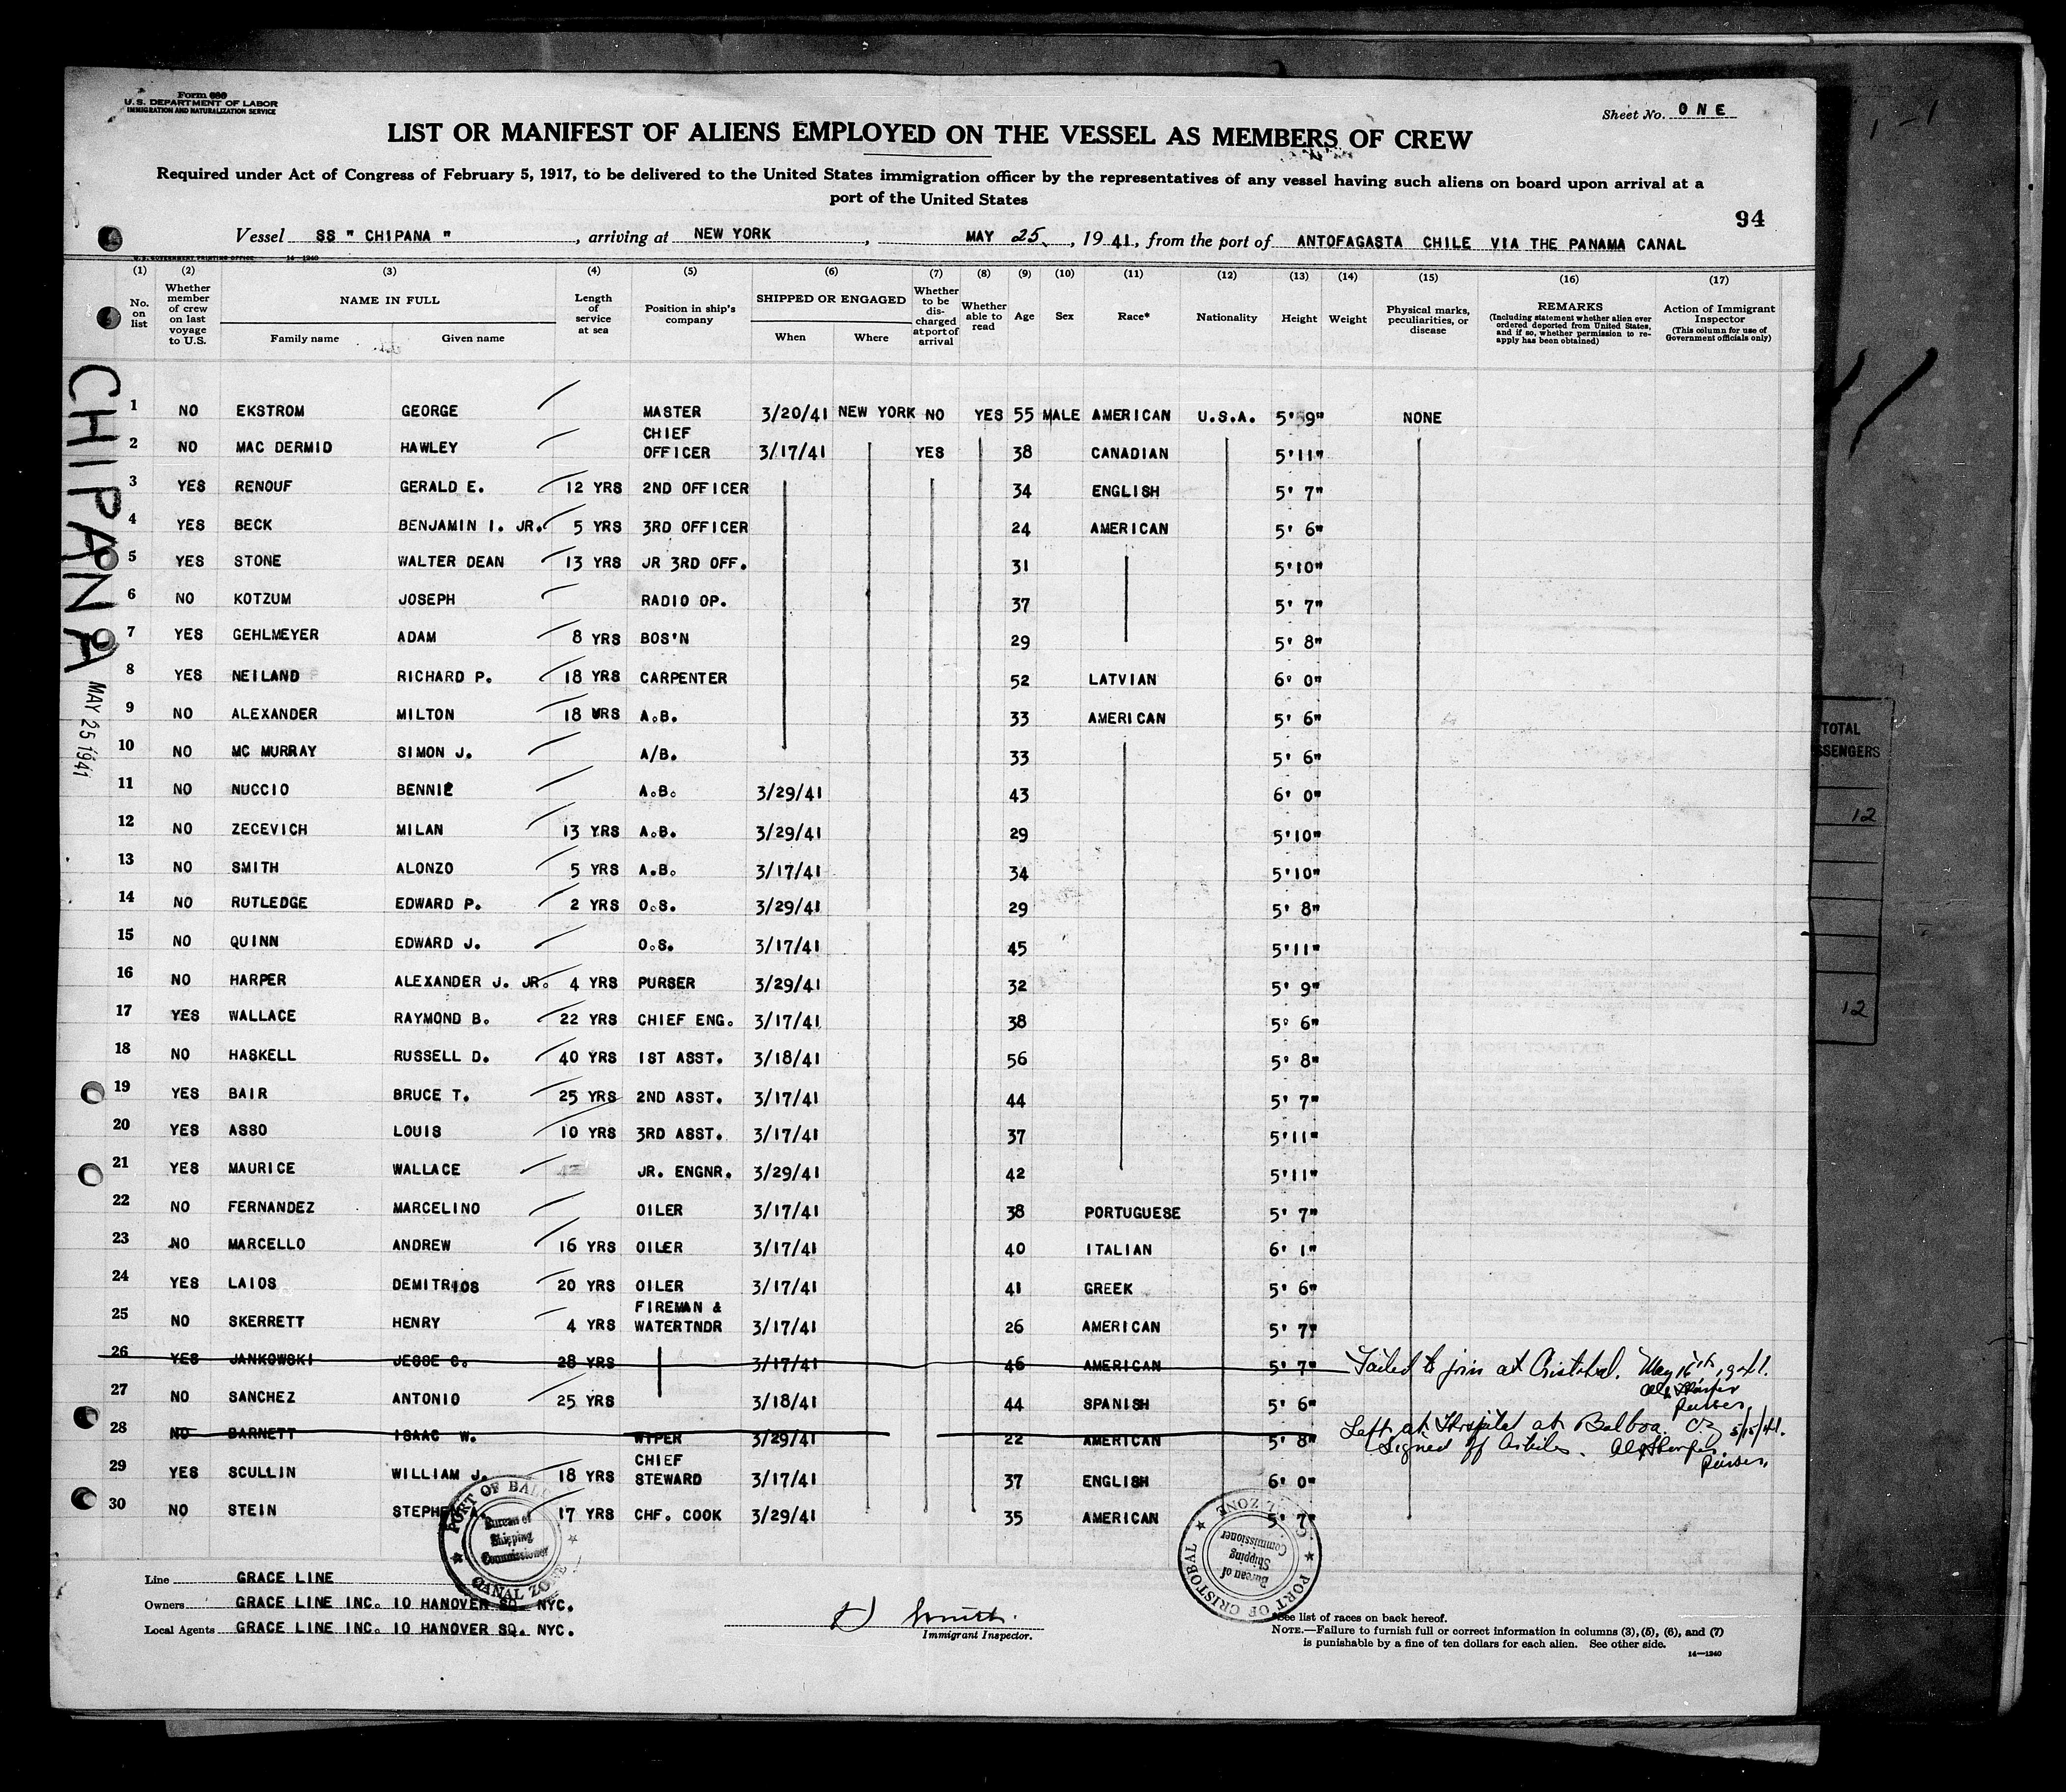 Form 680
U.S. DEPARTMENT OF LABOR
IMMIGRATION AND NATURALIZATION SERVICE
Sheet No. ONE
LIST OR MANIFEST OF ALIENS EMPLOYED ON THE VESSEL AS MEMBERS OF CREW
Required under Act of Congress of February 5, 1917, to be delivered to the United States immigration officer by the representatives of any vessel having such aliens on board upon arrival at a
port of the United States
94
Vessel SS " CHIPANA ", arriving at NEW YORK, MAY 25, 1941, from the port of ANTOFAGASTA CHILE VIA THE PANAMA CANAL
U.S. GOVERNMENT PRINTING OFFICE 14-1240
(1) (2) (3) (4) (5) (6) (7) (8) (9) (10) (11) (12) (13) (14) (15) (16) (17)
No. on list
Whether member of crew on last voyage to U.S.
NAME IN FULL
Family name Given name
Length of service at sea
Position in ship's company
SHIPPED OR ENGAGED
When Where
Whether to be discharged at port of arrival
Whether able to read
Age
Sex
Race*
Nationality
Height
Weight
Physical marks, peculiarities, or disease
REMARKS
(Including statement whether alien ever ordered deported from United States, and if so, whether permission to re-apply has been obtained)
Action of Immigrant Inspector
(This column for use of Government officials only)
1 NO EKSTROM GEORGE MASTER 3/20/41 NEW YORK NO YES 55 MALE AMERICAN U.S.A. 5'59" NONE
2 NO MAC DERMID HAWLEY CHIEF OFFICER 3/17/41 YES 38 CANADIAN 5'11"
3 YES RENOUF GERALD E. 12 YRS 2ND OFFICER 34 ENGLISH 5' 7"
4 YES BECK BENJAMIN I. JR. 5 YRS 3RD OFFICER 24 AMERICAN 5' 6"
5 YES STONE WALTER DEAN 13 YRS JR 3RD OFF. 31 5'10"
6 NO KOTZUM JOSEPH RADIO OP. 37 5' 7"
7 YES GEHLMEYER ADAM 8 YRS BOS'N 29 5' 8"
8 YES NEILAND RICHARD P. 18 YRS CARPENTER 52 LATVIAN 6' 0"
9 NO ALEXANDER MILTON 18 URS A.B. 33 AMERICAN 5' 6"
10 NO MC MURRAY SIMON J. A/B. 33 5' 6"
11 NO NUCCIO BENNIE A.B. 3/29/41 43 6' 0"
12 NO ZECEVICH MILAN 13 YRS A.B. 3/29/41 29 5'10"
13 NO SMITH ALONZO 5 YRS A.B. 3/17/41 34 5'10"
14 NO RUTLEDGE EDWARD P. 2 YRS O.S. 3/29/41 29 5' 8"
15 NO QUINN EDWARD J. O.S. 3/17/41 45 5'11"
16 NO HARPER ALEXANDER J. JR. 4 YRS PURSER 3/29/41 32 5' 9"
17 YES WALLACE RAYMOND B. 22 YRS CHIEF ENG. 3/17/41 38 5' 6"
18 NO HASKELL RUSSELL D. 40 YRS 1ST ASST. 3/18/41 56 5' 8"
19 YES BAIR BRUCE T. 25 YRS 2ND ASST. 3/17/41 44 5' 7"
20 YES ASSO LOUIS 10 YRS 3RD ASST. 3/17/41 37 5'11"
21 YES MAURICE WALLACE JR. ENGNR. 3/29/41 42 5'11"
22 NO FERNANDEZ MARCELINO OILER 3/17/41 38 PORTUGUESE 5' 7"
23 NO MARCELLO ANDREW 16 YRS OILER 3/17/41 40 ITALIAN 6' 1"
24 YES LAIOS DEMITRIOS 20 YRS OILER 3/17/41 41 GREEK 5' 6"
25 NO SKERRETT HENRY 4 YRS FIREMAN & WATERTNDR 3/17/41 26 AMERICAN 5' 7"
26 YES JANKOWSKI JESSE C. 28 YRS 3/17/41 46 AMERICAN 5' 7" Failed to join at Cristobal. May 16th, 1941.
Purser
27 NO SANCHEZ ANTONIO 25 YRS 3/18/41 44 SPANISH 5' 6"
28 NO BARNETT ISAAC W. WIPER 3/29/41 22 AMERICAN 5' 8" Left at Hospital at Balboa C.Z. 5/15/41.
Signed off Articles. Purser.
29 YES SCULLIN WILLIAM J. 18 YRS CHIEF STEWARD 3/17/41 37 ENGLISH 6' 0"
30 NO STEIN STEPHEN A. 17 YRS CHF. COOK 3/29/41 35 AMERICAN 5' 7"
CHIPANA
MAY 25 1941
PORT OF BALBOA
Bureau of Shipping Commissioner
CANAL ZONE
PORT OF CRISTOBAL
Bureau of Shipping Commissioner
CANAL ZONE
Line GRACE LINE
Owners GRACE LINE INC. 10 HANOVER SQ. NYC.
Local Agents GRACE LINE INC. 10 HANOVER SQ. NYC.
Smith
Immigrant Inspector.
*See list of races on back hereof.
NOTE.—Failure to furnish full or correct information in columns (3), (5), (6), and (7)
is punishable by a fine of ten dollars for each alien. See other side.
14—1240
TOTAL
SSENGERS
12
12